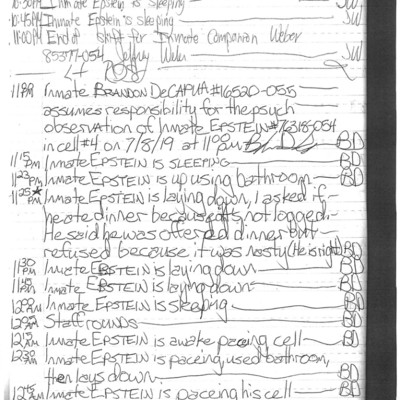 10:30PM Inmate Epstein is sleeping JW
10:45PM Inmate Epstein is sleeping JW
11:00PM End of shift for Inmate Companion Weber JW
85377-054 Jeffrey Weber
11PM Inmate BRANDON DeCAPUA #16520-055
assumes responsibility for the psych
observation of Inmate EPSTEIN #76318-054
in cell #4 on 7/8/19 at 11:00PM BD
11:15PM Inmate EPSTEIN is SLEEPING BD
11:23PM Inmate EPSTEIN is up using bathroom BD
11:25PM* Inmate EPSTEIN is laying down, I asked if
he ate dinner because it's not logged.
He said he was offered dinner but
refused because it was nasty (He is right) BD
11:30PM Inmate EPSTEIN is laying down BD
11:45PM Inmate EPSTEIN is laying down BD
12:00AM Inmate EPSTEIN is sleeping BD
Staff rounds BD
12:15AM Inmate EPSTEIN is awake pacing cell BD
12:30AM Inmate EPSTEIN is paceing, used bathroom,
then lays down BD
12:45AM Inmate EPSTEIN is paceing his cell BD